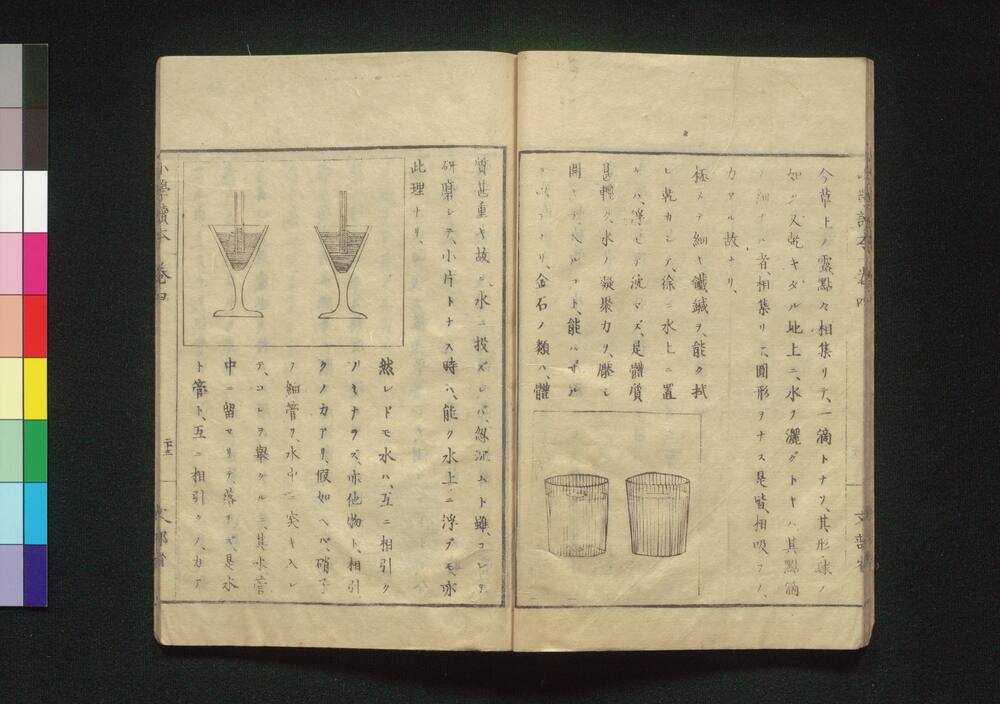 今草上ノ露點々相集リテ、一滴トナリ、其形珠ノ
如ク、又乾キタル地上ニ、水ヲ灑グトキハ、其點滴
ノ細ナル者、相集リテ、圓形ヲナス、是皆、相吸フノ、
力アル故ナリ、
極メテ細キ鐵鍼ヲ、能ク拭
ヒ乾カシテ、徐ニ水上ニ置
ケバ、浮ビテ沈マズ、是體質
甚輕ク、水ノ凝聚力ヲ、勝シ
開キ 入ル コト、能ハザル
ニ ナリ、金石ノ類ハ、體
質甚重キ故ニ、水ニ投ズレバ、忽沈ムト雖、コレヲ
研磨シテ、小片トナス時ハ、能ク水上ニ浮ブモ亦
此理ナリ、
然レドモ水ハ、互ニ相引ク
ノミナラズ、亦他物ト、相引
クノ力アリ、假如ヘバ、硝子
ノ細管ヲ、水中ニ突キ入レ
テ、コレヲ舉グルニ、其水管
中ニ留マリテ、落チズ、是水
ト管ト、互ニ相引クノ、力ア
小學讀本 卷四
二十三
文部省